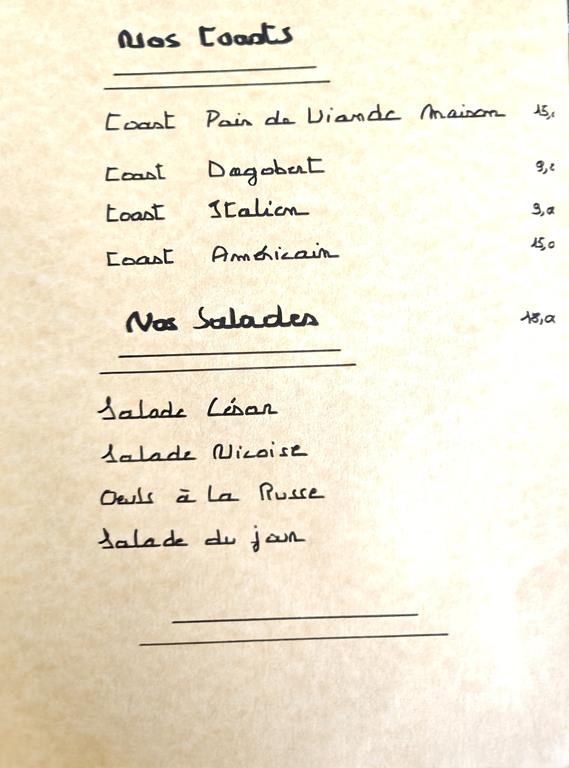 Nos Toasts
Toast Pain de Viande Maison 15,
Toast Dagobert 9,
Toast Italien 9,0
Toast Américain 15,0
Nos Salades 18,0
Salade César
Salade Nicoise
Oeufs à La Russe
Salade du jour